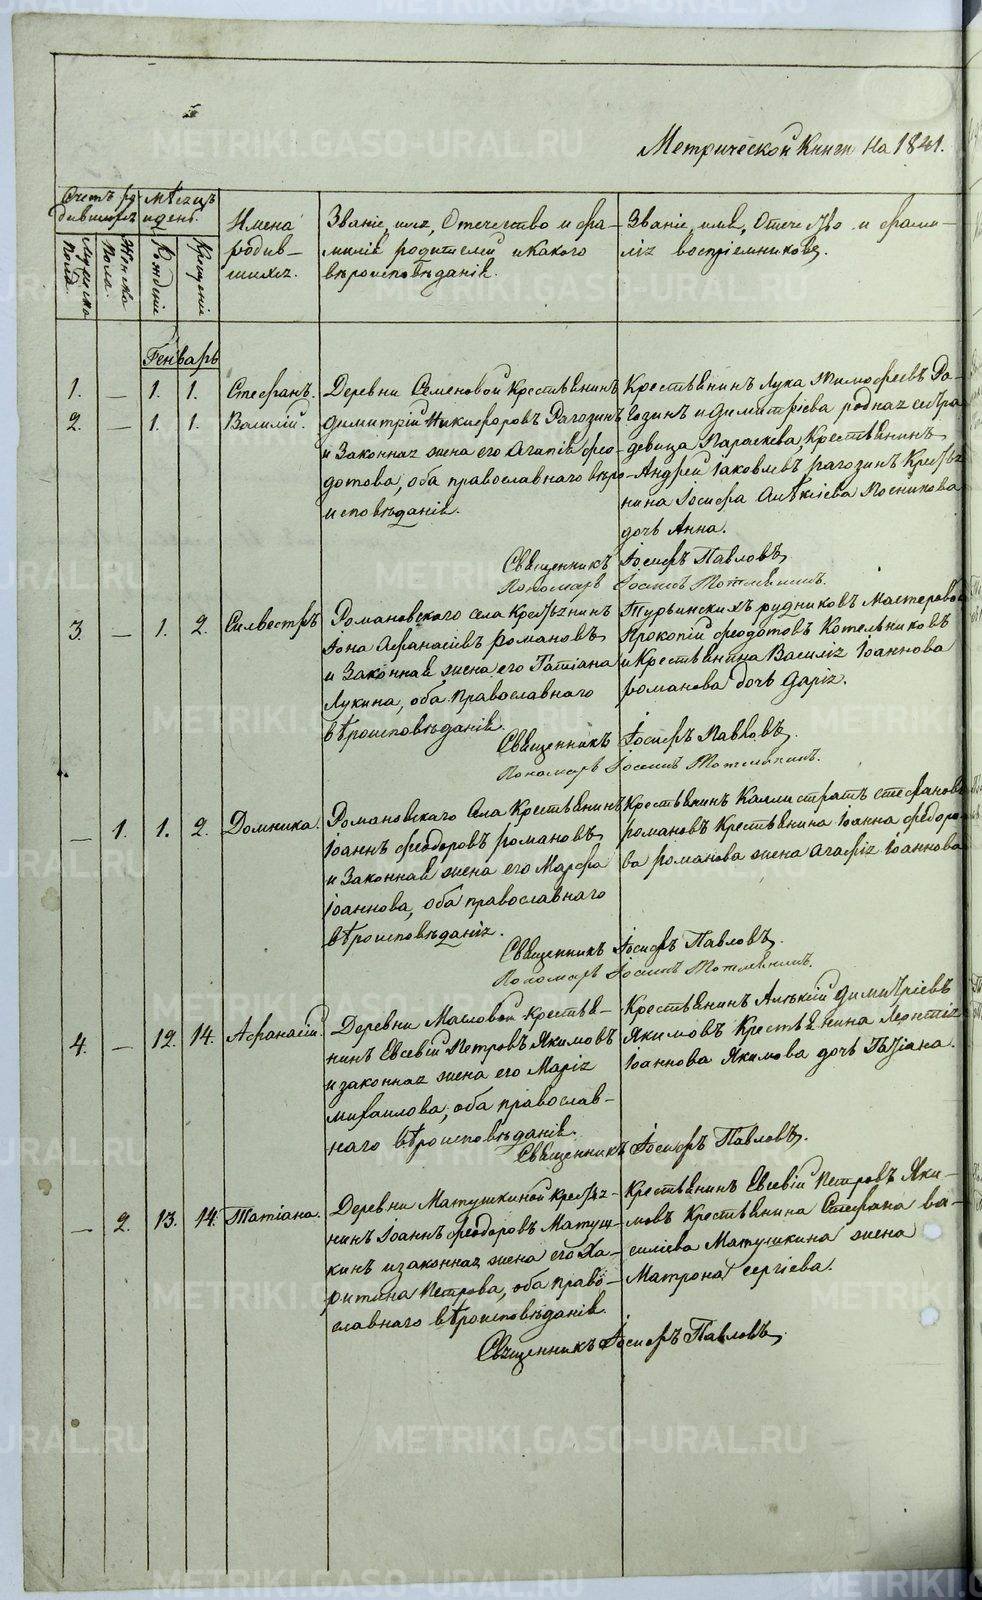 Метрической Книги на 1841.
Счетъ родившихся
Мужеска пола.
Женска пола.
Мѣсяцъ и день.
Рожденія
Крещенія
Имена родившихся.
Званіе, имя, Отечество и фамилія родителей и какого вѣроисповѣданія.
Званіе, имя, Отечество и фамилія воспріемниковъ.
Генварь
1. — 1. 1. Стефанъ.
2. — 1. 1. Василій.
Деревни Семеновой Крестьянинъ
Димитрій Никифоровъ Рагозинъ
и Законная жена его Агапія Фео-
дотова, оба православнаго вѣро-
исповѣданія.
Крестьянинъ Лука Тимофеевъ Ра-
гозинъ и Димитріева родная сестра
девица Параскева, Крестьянинъ
Андрей Іаковлевъ Рагозинъ Кресть-
нина Іосифа Алексіева Посникова
дочь Анна.
Священникъ Іосифъ Павловъ
Пономарь Іосифъ Топорковъ.
3. — 1. 2. Силвестръ
Романовского села Крестьянинъ
Іона Афанасіевъ Романовъ
и Законная жена его Татіана
Лукина, оба Православнаго
вѣроисповѣданія.
Турьинскихъ рудниковъ Мастеровой
Прокопій Феодотовъ Котельниковъ
и Крестьянина Василія Іоаннова
Романова дочь Дарія.
Священникъ Іосифъ Павловъ.
— 1. 1. 2. Домника.
Романовскаго Села Крестьянинъ
Іоаннъ Феодоровъ Романовъ
и Законная жена его Марфа
Іоаннова, оба православнаго
вѣроисповѣданія.
Крестьянинъ Каллистратъ Стефановъ
Романовъ Крестьянина Іоанна Федоро-
ва Романова жена Агафія Іоаннова
Священникъ Іосифъ Павловъ.
4. — 12. 14. Афанасій.
Деревни Масловой Крестья-
нинъ Евсевій Петровъ Якимовъ
и законная жена его Марія
Михаилова, оба православ-
наго вѣроисповѣданія.
Крестьянинъ Алексій Димитріевъ
Якимовъ Крестьянина Леонтія
Іоаннова Якимова дочь Татіана.
Священникъ Іосифъ Павловъ.
— 2. 13. 14. Татіана.
Деревни Матушкиной Крестья-
нинъ Іоаннъ Феодоровъ Матуш-
кинъ и законная жена его Ха-
ритина Петрова, оба право-
славнаго вѣроисповѣданія.
Крестьянинъ Евсевій Петровъ Яки-
мовъ Крестьянина Стефана Ва-
силіева Матушкина жена
Матрона Сергіева.
Священникъ Іосифъ Павловъ.
METRIKI.GASO-URAL.RU